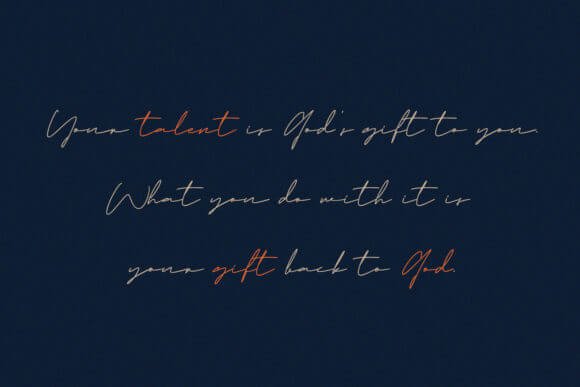 Your talent is God's gift to you.
What you do with it is
your gift back to God.